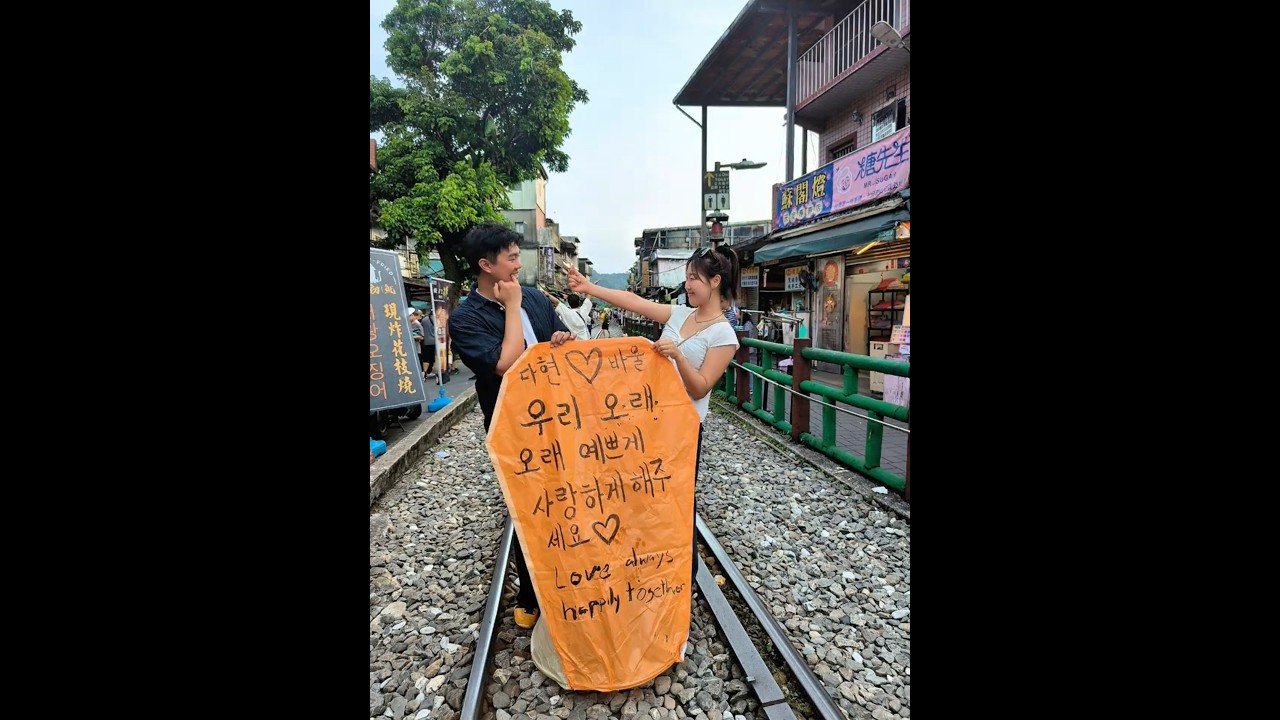 다현♡바울
우리 오래
오래 예쁘게
사랑하게해주
세요♡
Love always
happily together
現炸花枝燒
징어
蘇閣燈
糖先生
TOILET